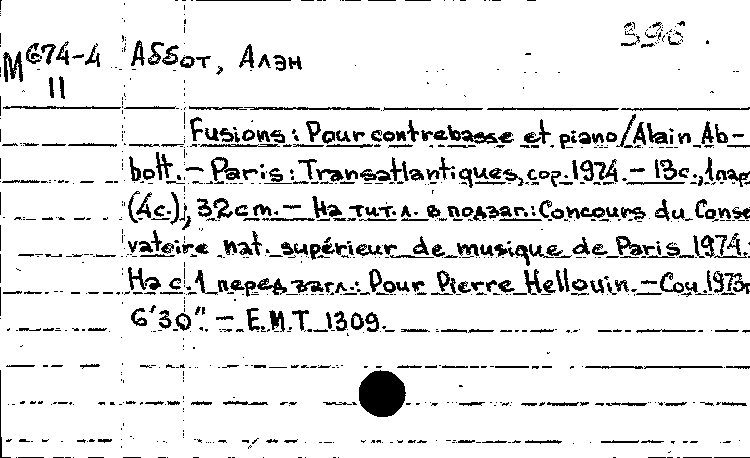 396.
М 674-4 Аббот, Алэн
II
Fusions: Pour contrebasse et piano/Alain Ab-
bott. – Paris: Transatlantiques, cop. 1974. – 13с., 1пар
(4с.); 32cm. – На тит.л. в подзаг.: Concours du Conse
vatoire nat. supérieur de musique de Paris 1974.
На с.1 перед загл.: Pour Pierre Hellouin. – Соч. 1973г
6'30". – E.M.T. 1309.